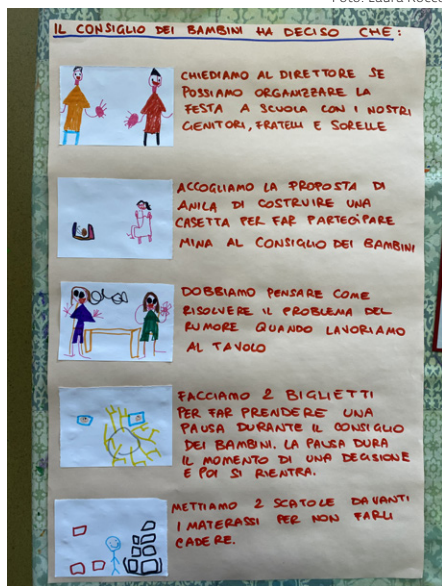 Foto: Laura Rocca
IL CONSIGLIO DEI BAMBINI HA DECISO CHE:
CHIEDIAMO AL DIRETTORE SE
POSSIAMO ORGANIZZARE LA
FESTA A SCUOLA CON I NOSTRI
GENITORI, FRATELLI E SORELLE
ACCOGLIAMO LA PROPOSTA DI
ANILA DI COSTRUIRE UNA
CASETTA PER FAR PARTECIPARE
MINA AL CONSIGLIO DEI BAMBINI
DOBBIAMO PENSARE COME
RISOLVERE IL PROBLEMA DEL
RUMORE QUANDO LAVORIAMO
AL TAVOLO
FACCIAMO 2 BIGLIETTI
PER FAR PRENDERE UNA
PAUSA DURANTE IL CONSIGLIO
DEI BAMBINI. LA PAUSA DURA
IL MOMENTO DI UNA DECISIONE
E POI SI RIENTRA.
METTIAMO 2 SCATOLE DAVANTI
I MATERASSI PER NON FARLI
CADERE.